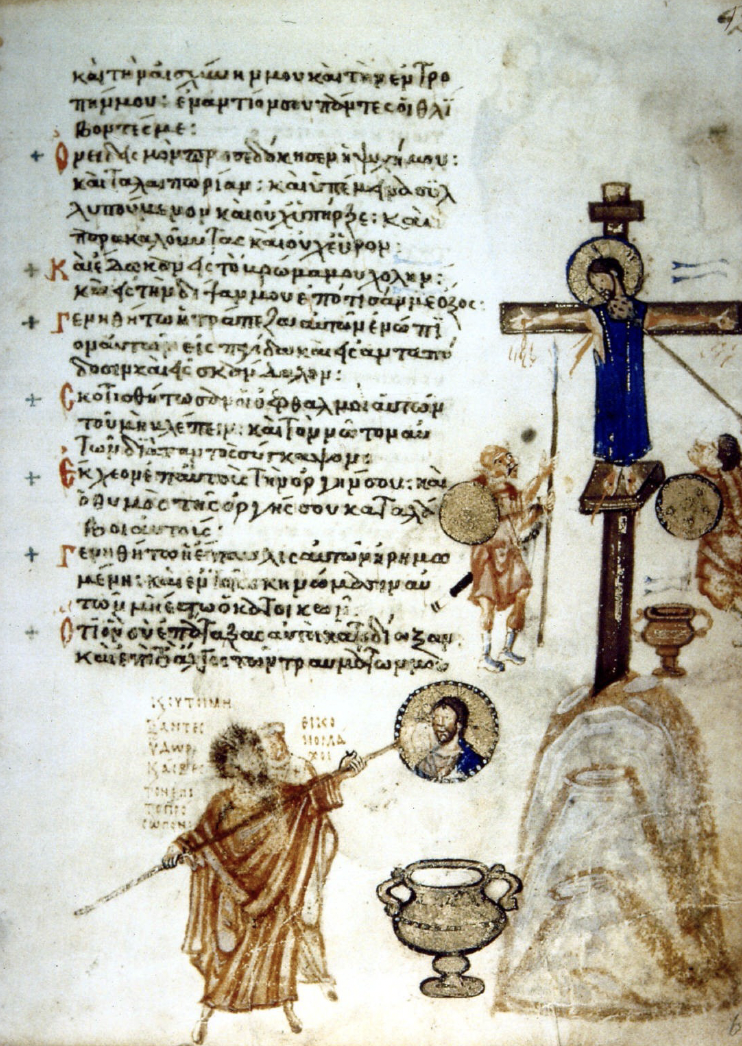 καὶ τὴν αἰσχύνην μου καὶ τὴν ἐντρο
πήν μου: ἐναντίον σου πάντες οἱ θλί
βοντές με:
Ονειδισμὸν προσεδόκησεν ἡ ψυχή μου:
καὶ ταλαιπωρίαν: καὶ ὑπέμεινα συλ
λυπούμενον καὶ οὐχ ὑπῆρξε: καὶ
παρακαλοῦντας καὶ οὐχ εὗρον:
Καὶ ἔδωκαν εἰς τὸ βρῶμά μου χολήν:
καὶ εἰς τὴν δίψαν μου ἐπότισάν με ὄξος:
Γενηθήτω ἡ τράπεζα αὐτῶν ἐνώπι
ον αὐτῶν εἰς παγίδα καὶ εἰς ἀνταπό
δοσιν καὶ εἰς σκάνδαλον:
Σκοτισθήτωσαν οἱ ὀφθαλμοὶ αὐτῶν
τοῦ μὴ βλέπειν: καὶ τὸν νῶτον αὐ
τῶν διὰ παντὸς σύγκαμψον:
Εκχεον ἐπ αὐτοὺς τὴν ὀργήν σου: καὶ
ὁ θυμὸς τῆς ὀργῆς σου καταλά
βοι αὐτούς:
Γενηθήτω ἡ ἔπαυλις αὐτῶν ἠρημω
μένη: καὶ ἐν τοῖς σκηνώμασιν αὐ
τῶν μὴ ἔστω ὁ κατοικῶν:
Οτι ὃν σὺ ἐπάταξας αὐτοὶ κατεδίωξαν:
καὶ ἐπὶ τὸ ἄλγος τῶν τραυμάτων μου
ΞΑΝΤΕΣ
ΥΔΩΡ
ΕΙΚΟ
ΝΟΜΑ
ΧΟΙ